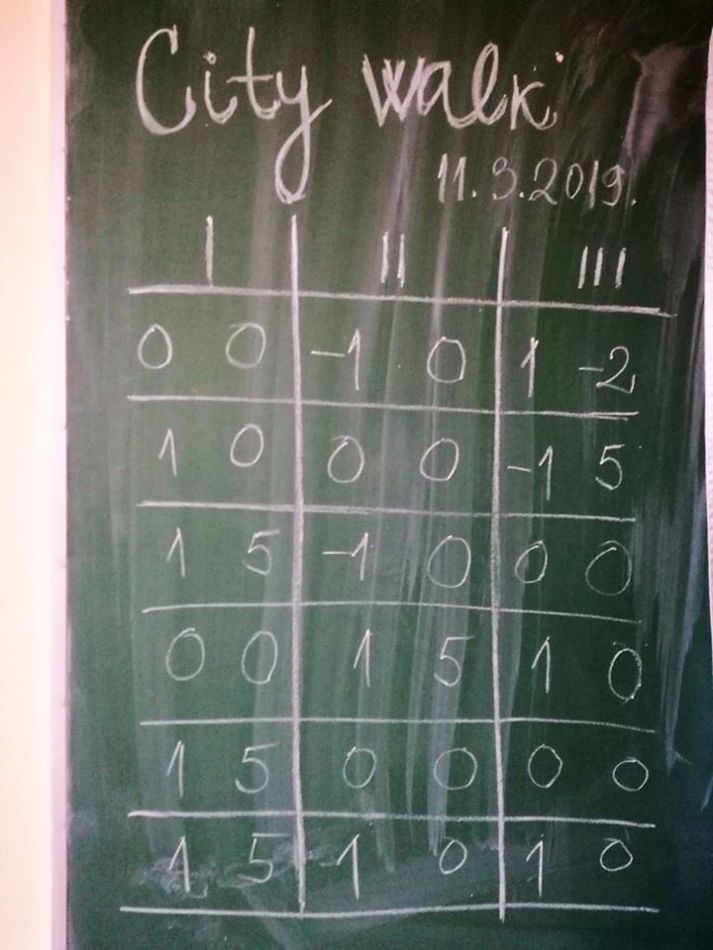 City walk
11.3.2019.
I II III
0 0 -1 0 1 -2
1 0 0 0 -1 5
1 5 -1 0 0 0
0 0 1 5 1 0
1 5 0 0 0 0
1 5 -1 0 1 0